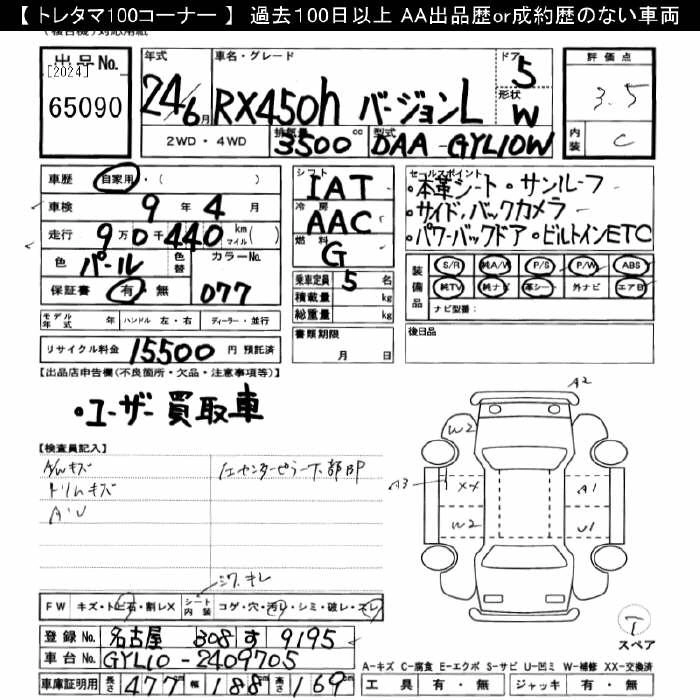 【 トレタマ100コーナー 】 過去100日以上 AA出品歴or成約歴のない車両
出品No.
[2024]
65090
年式 車名・グレード ドア 5 評価点
24/6月 RX450h バージョンL 形状 W 3.5
2WD・4WD 排気量 3500cc 型式 DAA-GYL10W 内装 C
車歴 自家用・( )
車検 9年 4月
走行 9万0千440 km マイル( )
色 パール 色替 カラーNo. 077
保証書 有・無
シフト IAT
冷房 AAC
燃料 G
乗車定員 5名
積載量 kg
総重量 kg
書類期限 月 日
セールスポイント
・本革シート・サンルーフ
・サイド,バックカメラ
・パワーバックドア・ビルトインETC
装備品 S/R 純A/W P/S P/W ABS
純TV 純ナビ 革シート 外ナビ エアB
ナビ型番:
後日品
モデル年式 年 ハンドル 左・右 ディーラー・並行
リサイクル料金 15500円 預託済
【出品店申告欄(不良箇所・欠品・注意事項等)】
・ユーザー買取車
【検査員記入】
トリムキズ
A・U
シワ、キレ
FW キズ・トビ石・割レX シート内装 コゲ・穴・汚レ・シミ・破レ・スレ
登録No. 名古屋 308 す 9195
車台No. GYL10-2409705
車庫証明用 長さ477 幅188cm 高さ169cm
A2
W2
A3 XX A1
W2 U1
T
スペア
A-キズ C-腐食 E-エクボ S-サビ U-凹ミ W-補修 XX-交換済
工具 有・無 ジャッキ 有・無